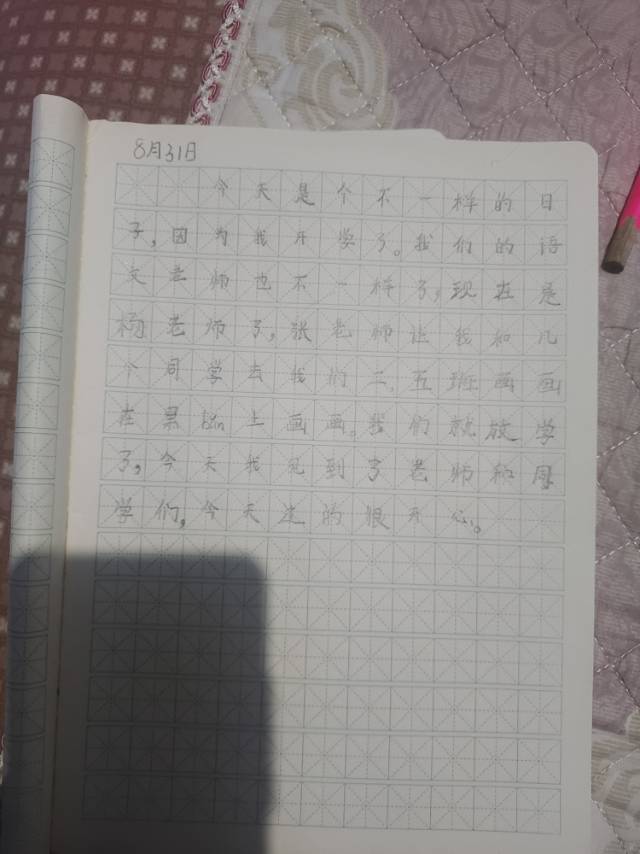 8月31日
今天是个不一样的日
子,因为我开学了。我们的语
文老师也不一样了,现在是
杨老师了,张老师让我和几
个同学去我们三.五班画画
在黑bǎn上画画。我们就放学
了,今天我见到了老师和同
学们,今天过的很开心。